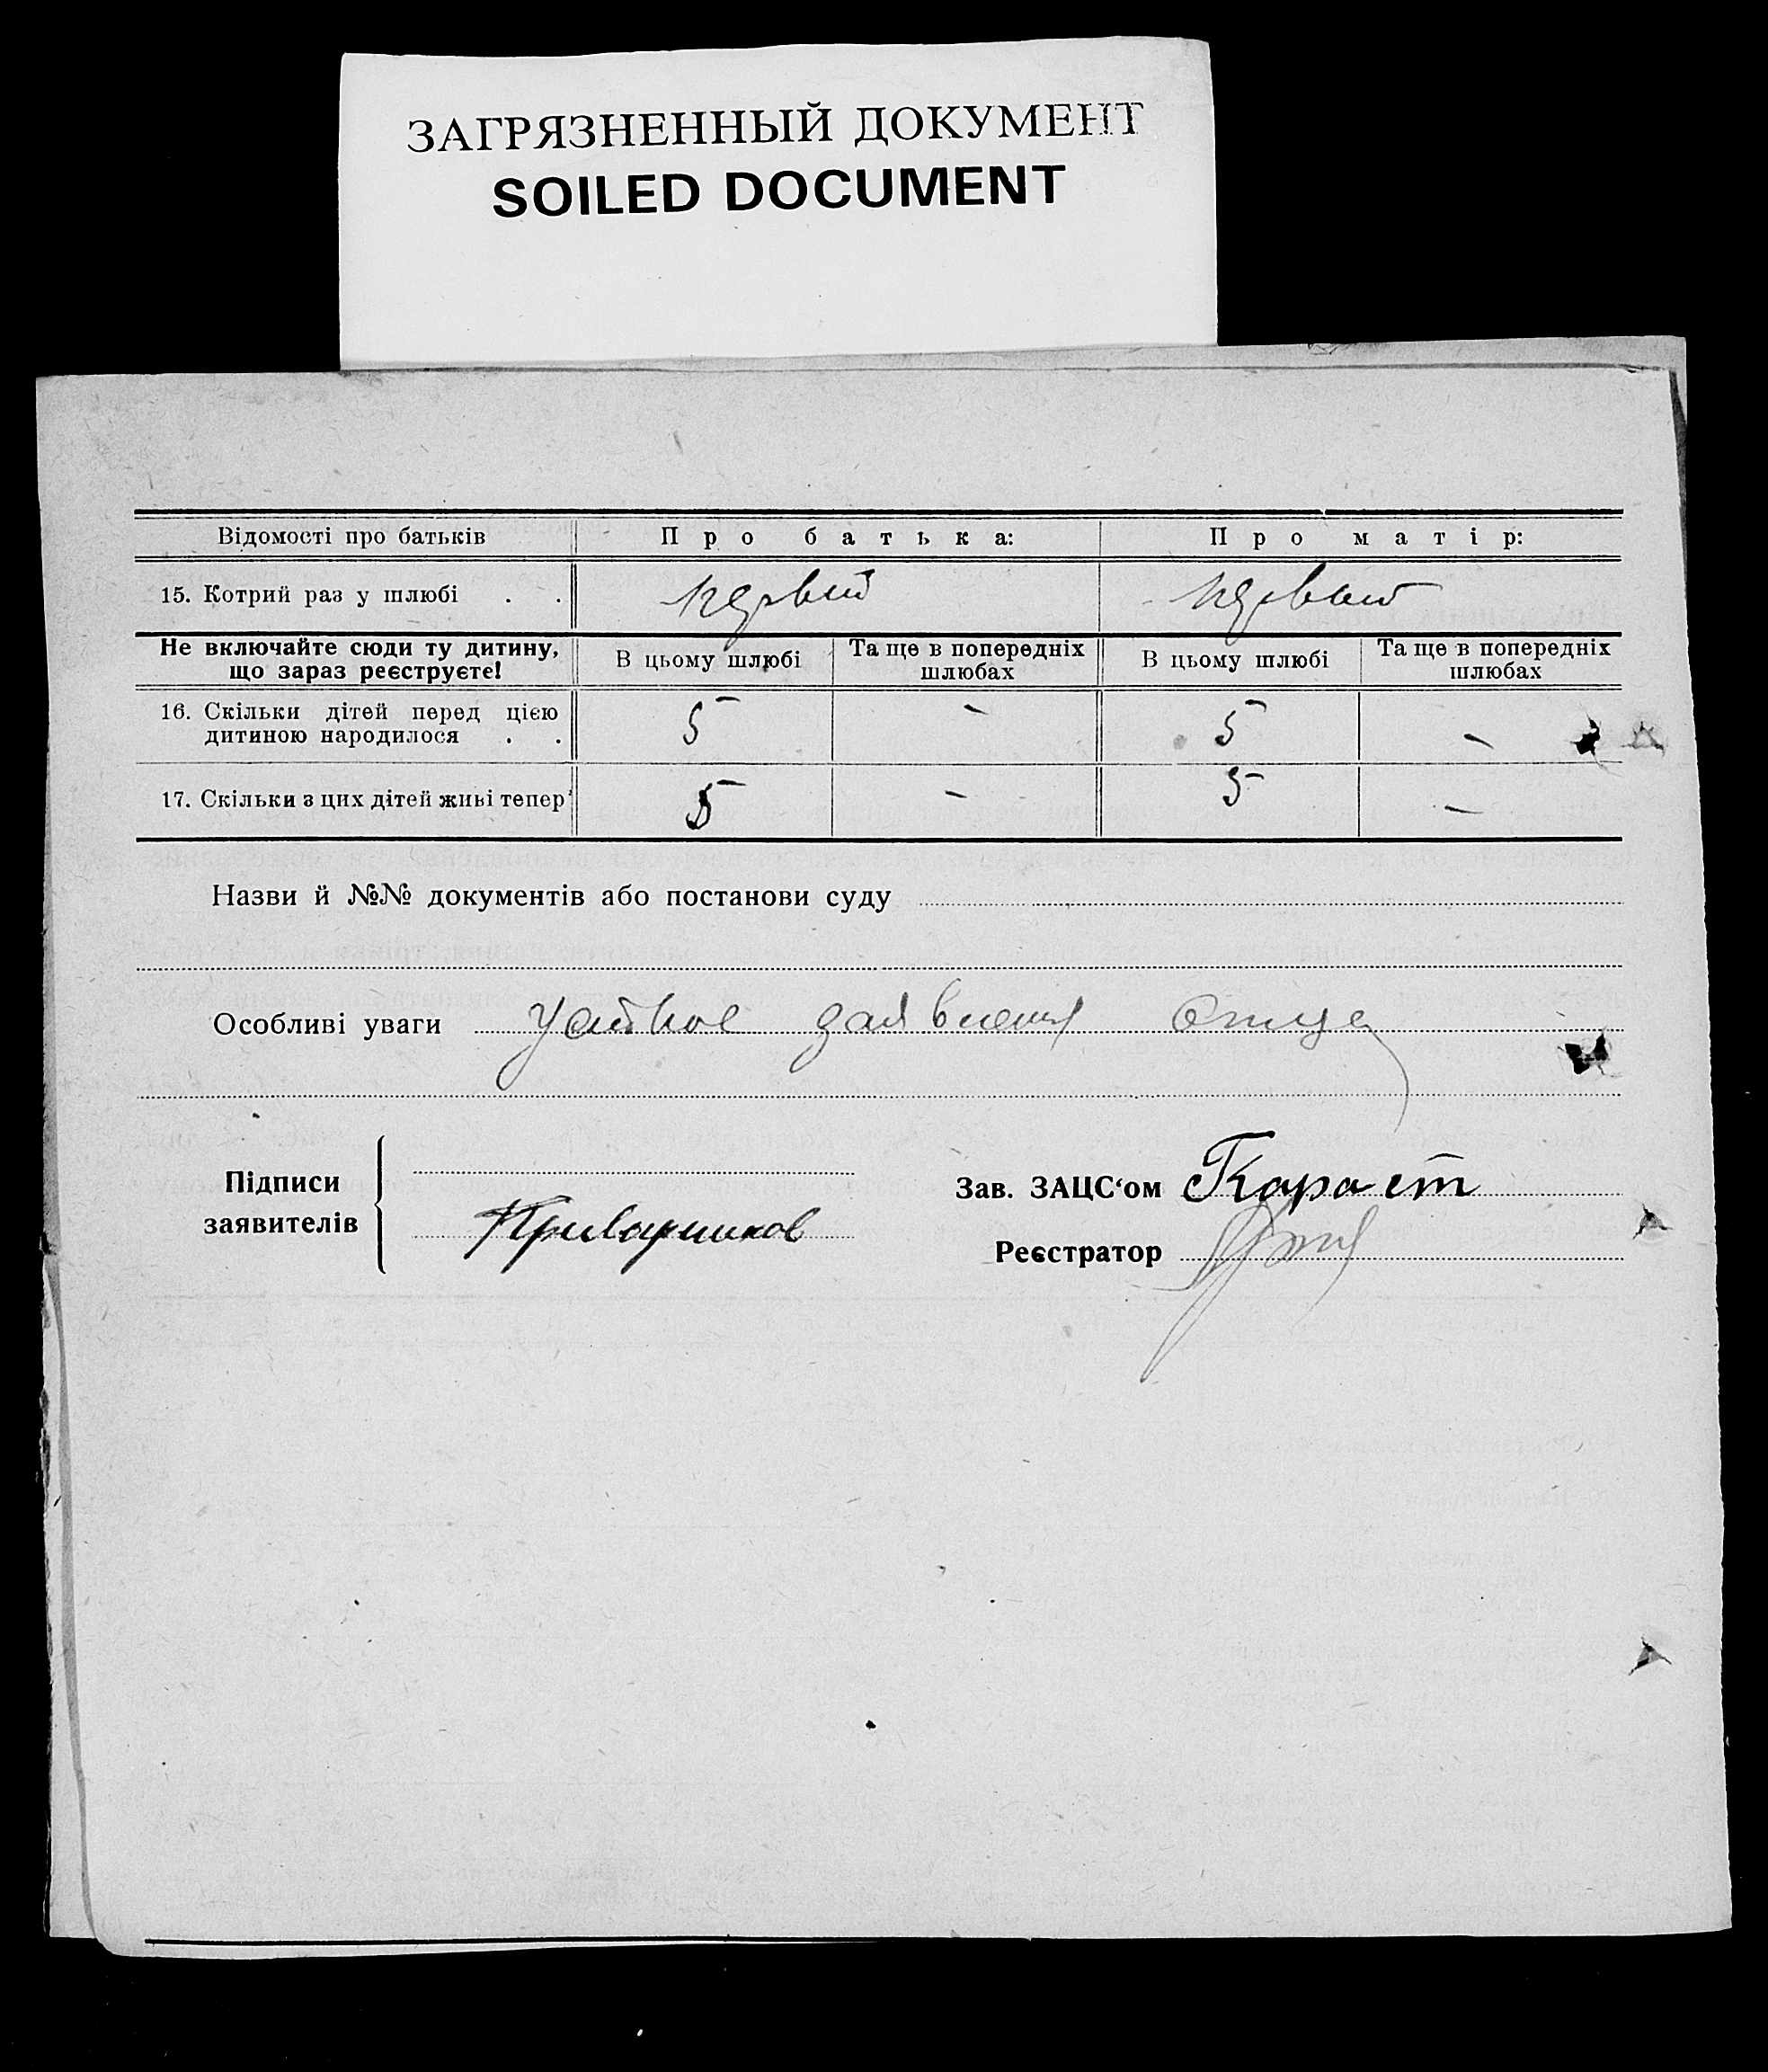 ЗАГРЯЗНЕННЫЙ ДОКУМЕНТ
SOILED DOCUMENT
Відомості про батьків Про батька: Про матір:
15. Котрий раз у шлюбі . . первый первый
Не включайте сюди ту дитину, що зараз реєструєте! В цьому шлюбі Та ще в попередніх шлюбах В цьому шлюбі Та ще в попередніх шлюбах
16. Скільки дітей перед цією
дитиною народилося . . 5 – 5 –
17. Скільки з цих дітей живі тепер 5 – 5 –
Назви й №№ документів або постанови суду
Особливі уваги устное заявления отца
Підписи
заявителів
Зав. ЗАЦС‘ом
Реєстратор